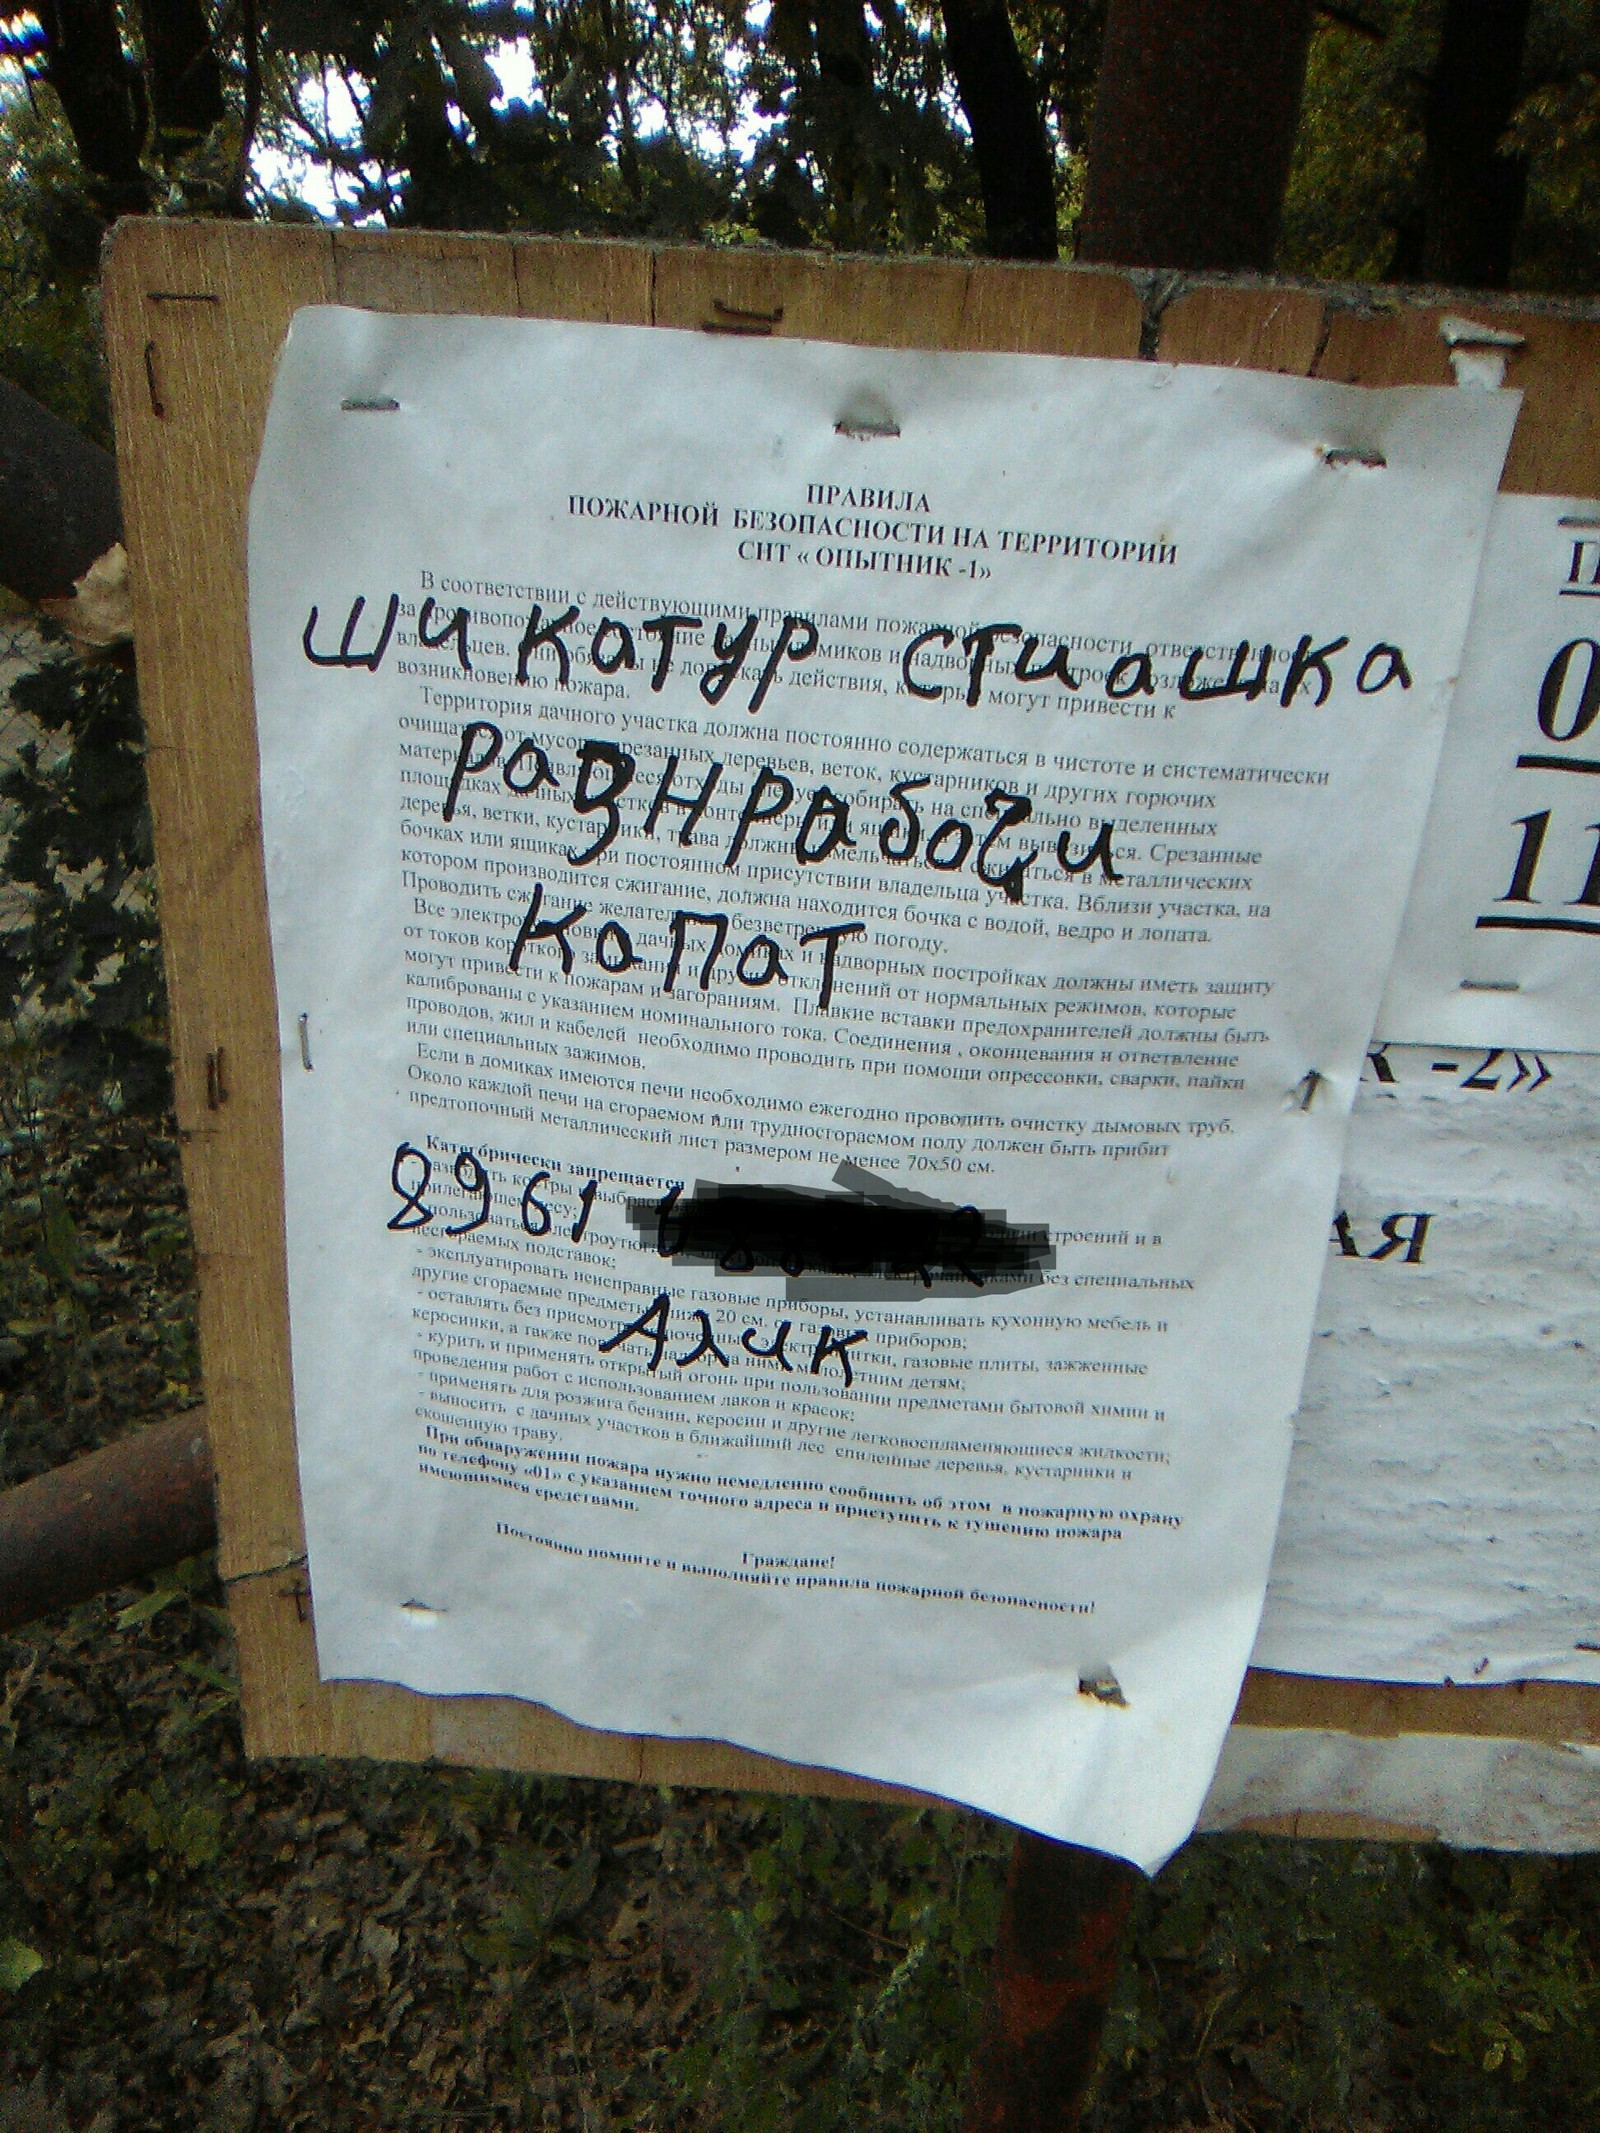 ПРАВИЛА
ПОЖАРНОЙ БЕЗОПАСНОСТИ НА ТЕРРИТОРИИ
СНТ « ОПЫТНИК -1»
В соответствии с действующими правилами пожарной безопасности
возникновению пожара. действия, могут привести к
ШИКАТУР СТИАШКА
Территория дачного участка должна постоянно содержаться в чистоте и систематически
деревьев, веток, кустарников и других горючих
собирать на специально выделенных
РАЗНРАБОЧИ
Срезанные
деревья, ветки, в металлических
бочках или ящиках при постоянном присутствии владельца участка. Вблизи участка, на
котором производится сжигание, должна находится бочка с водой, ведро и лопата.
Проводить сжигание погоду.
КОПАТ
Все дачных домиках и надворных постройках должны иметь защиту
от токов отклонений от нормальных режимов, которые
могут привести к пожарам и загораниям. Плавкие вставки предохранителей должны быть
калиброваны с указанием номинального тока. Соединения , оконцевания и ответвление
проводов, жил и кабелей необходимо проводить при помощи опрессовки, сварки, пайки
или специальных зажимов.
Если в домиках имеются печи необходимо ежегодно проводить очистку дымовых труб.
Около каждой печи на сгораемом или трудносгораемом полу должен быть прибит
предтопочный металлический лист размером не менее 70х50 см.
Категорически запрещается
8961
строений и в
без специальных
несгораемых подставок;
- эксплуатировать неисправные газовые приборы, устанавливать кухонную мебель и
другие сгораемые предметы 20 см. приборов;
АлИК
- оставлять без присмотра газовые плиты, зажженные
керосинки, а также детям;
- курить и применять открытый огонь при пользовании предметами бытовой химии и
проведения работ с использованием лаков и красок;
- применять для розжига бензин, керосин и другие легковоспламеняющиеся жидкости;
- выносить с дачных участков в ближайший лес спиленные деревья, кустарники и
скошенную траву.
При обнаружении пожара нужно немедленно сообщить об этом в пожарную охрану
по телефону «01» с указанием точного адреса и приступить к тушению пожара
имеющимися средствами.
Граждане!
Постоянно помните и выполняйте правила пожарной безопасности!
П
0
11
К -2»
АЯ